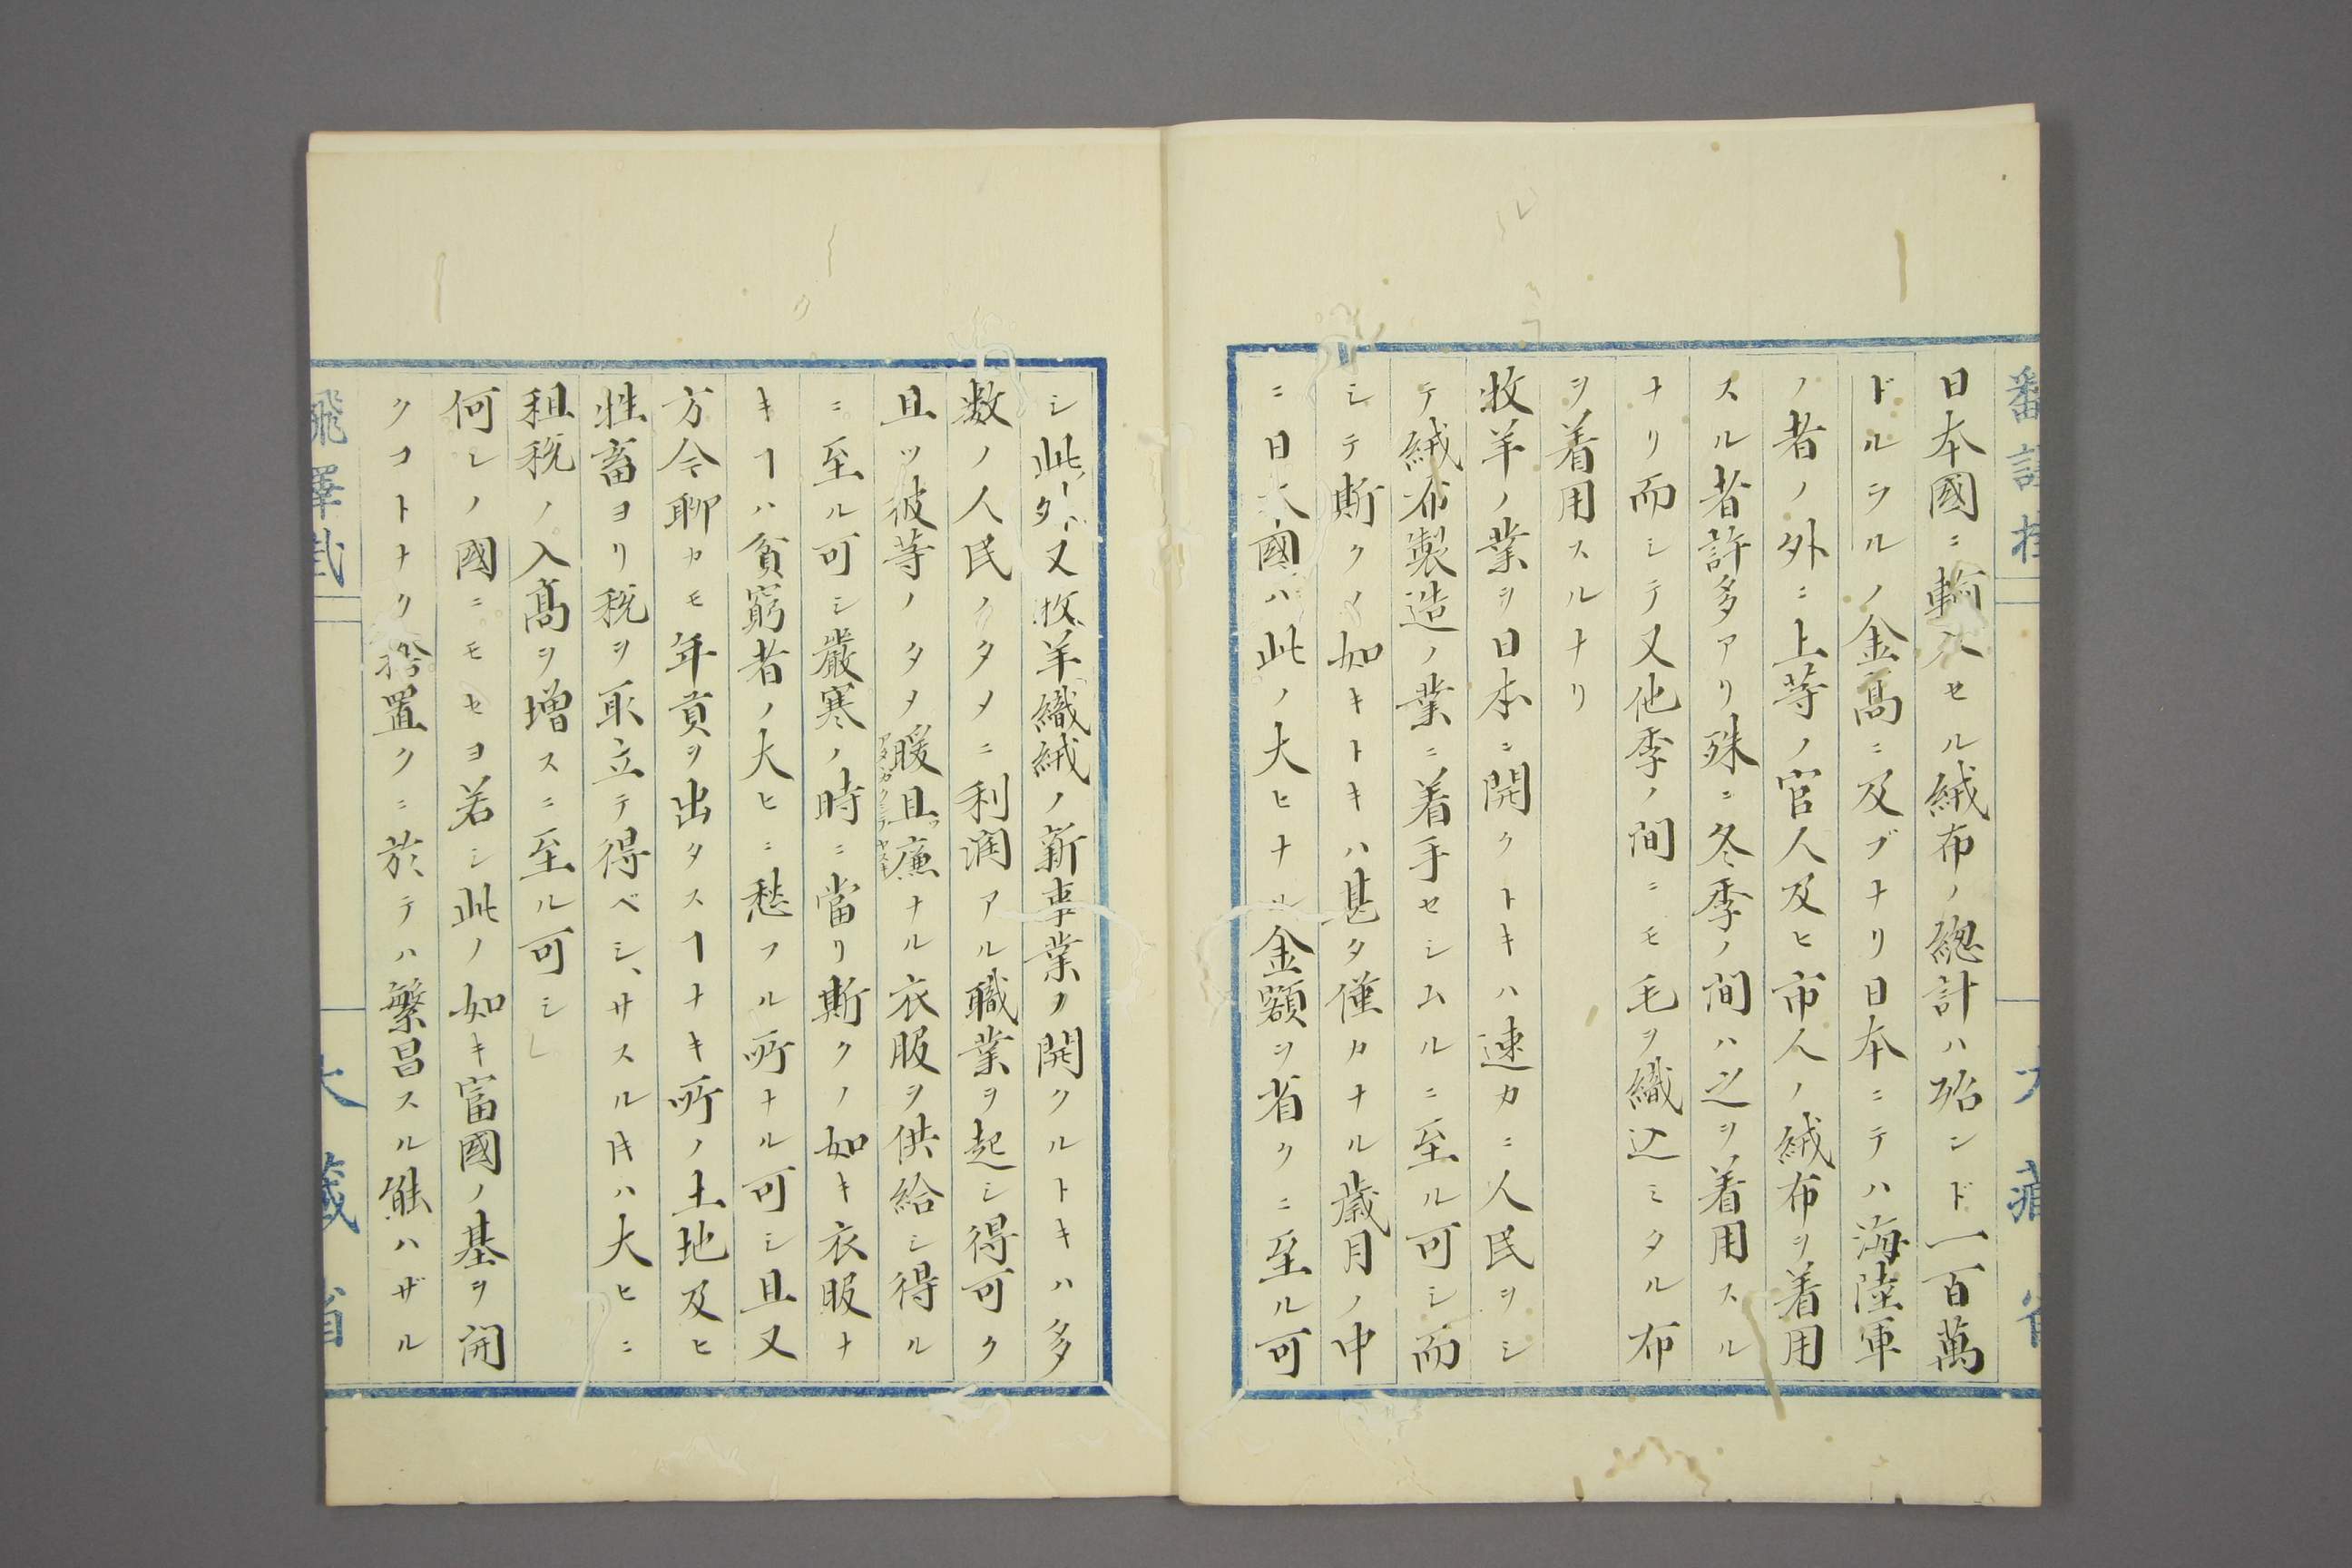 日本國ニ輸入セル絨布ノ總計ハ殆ンド一百萬
ドルラルノ金髙ニ及ブナリ日本ニテハ海陸軍
ノ者ノ外ニ上等ノ官人及ヒ市人ノ絨布ヲ着用
スル者許多アリ殊ニ冬季ノ间ハ之ヲ着用スル
ナリ而シテ又他季ノ间ニモ毛ヲ織込ミタル布
ヲ着用スルナリ
牧羊ノ業ヲ日本ニ開クトキハ速カニ人民ヲシ
テ絨布製造ノ業ニ着手セシムルニ至ル可シ而
シテ斯クノ如キトキハ甚タ僅カナル歳月ノ中
ニ日本國ハ此ノ大ヒナル金額ヲ省クニ至ル可
シ此ータ又牧羊織絨ノ新事業ヲ開クルトキハ多
数ノ人民ノタメニ利潤アル職業ヲ起シ得可ク
且ツ彼等ノタメ暖且廉ナル衣服ヲ供給シ得ル
ニ至ル可シ嚴寒ノ時ニ當リ斯クノ如キ衣服ナ
キヿハ貧窮者ノ大ヒニ愁フル所ナル可シ且又
方今聊カモ年貢ヲ出タスヿナキ所ノ土地及ヒ
牲畜ヨリ税ヲ取立テ得ベシ、サスル片ハ大ヒニ
租税ノ入髙ヲ増スニ至ル可シ
何レノ國ニモセヨ若シ此ノ如キ富國ノ基ヲ開
クコトナク捨置クニ於テハ繁昌スル能ハザル
大藏省